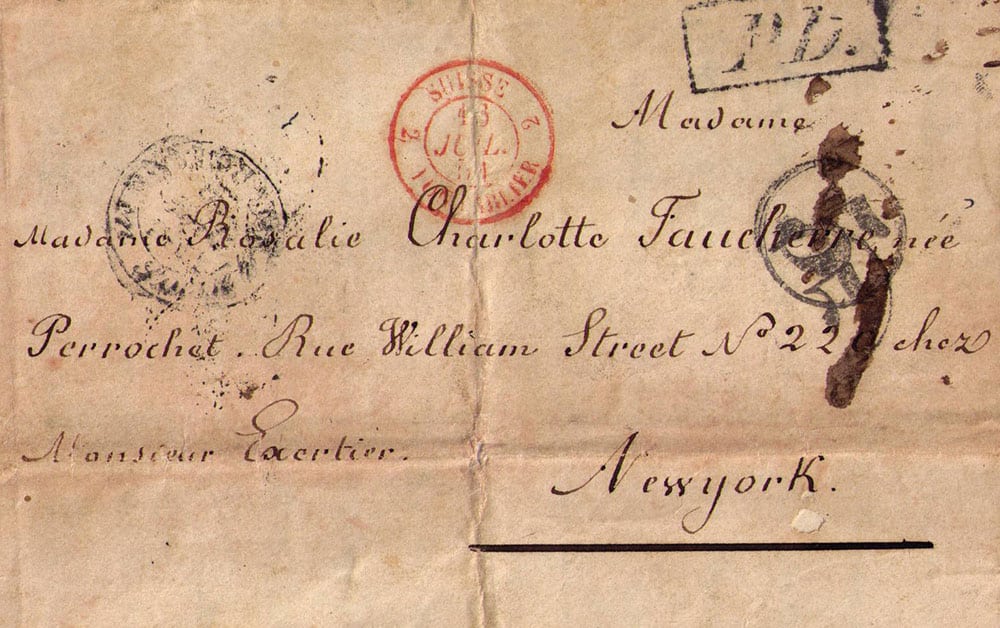 P.D.
SUISSE
2 2
JUIL.
Madame
Madame Rosalie Charlotte Faucherre née
Perrochet. Rue William Street No 220 chez
Monsieur Exertier.
Newyork.